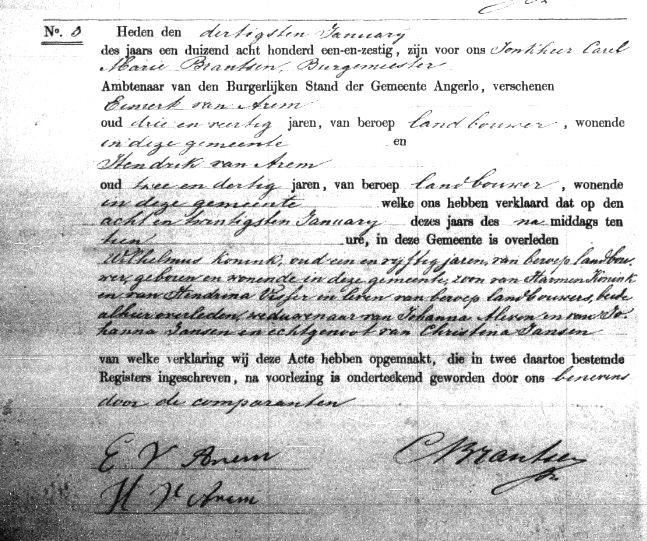 No. 3 Heden den dertigsten January
des jaars een duizend acht honderd een-en-zestig, zijn voor ons Jonkheer Carel
Marie Brantsen, Burgemeester
Ambtenaar van den Burgerlijken Stand der Gemeente Angerlo, verschenen
Evmerk van Arem
oud drie en veertig jaren, van beroep landbouwer, wonende
in deze gemeente en
Hendrik van Arem
oud twee en dertig jaren, van beroep landbouwer, wonende
in deze gemeente welke ons hebben verklaard dat op den
acht en twintigsten January dezes jaars des na middags ten
tien ure, in deze Gemeente is overleden
Wilhelmus Konink, oud een en vyftig jaren, van beroep landbou-
wer, geboren en wonende in deze gemeente, zoon van Harmen Konink
en van Hendrina Visser in leven van beroep landbouwers, beide
alhier overleden, weduwenaar van Johanna en van Jo-
hanna Jansen en echtgenoot van Christina Jansen
van welke verklaring wij deze Acte hebben opgemaakt, die in twee daartoe bestemde
Registers ingeschreven, na voorlezing is onderteekend geworden door ons benevens
door de comparanten
E V Arem
CMBrantsen
H V Arem